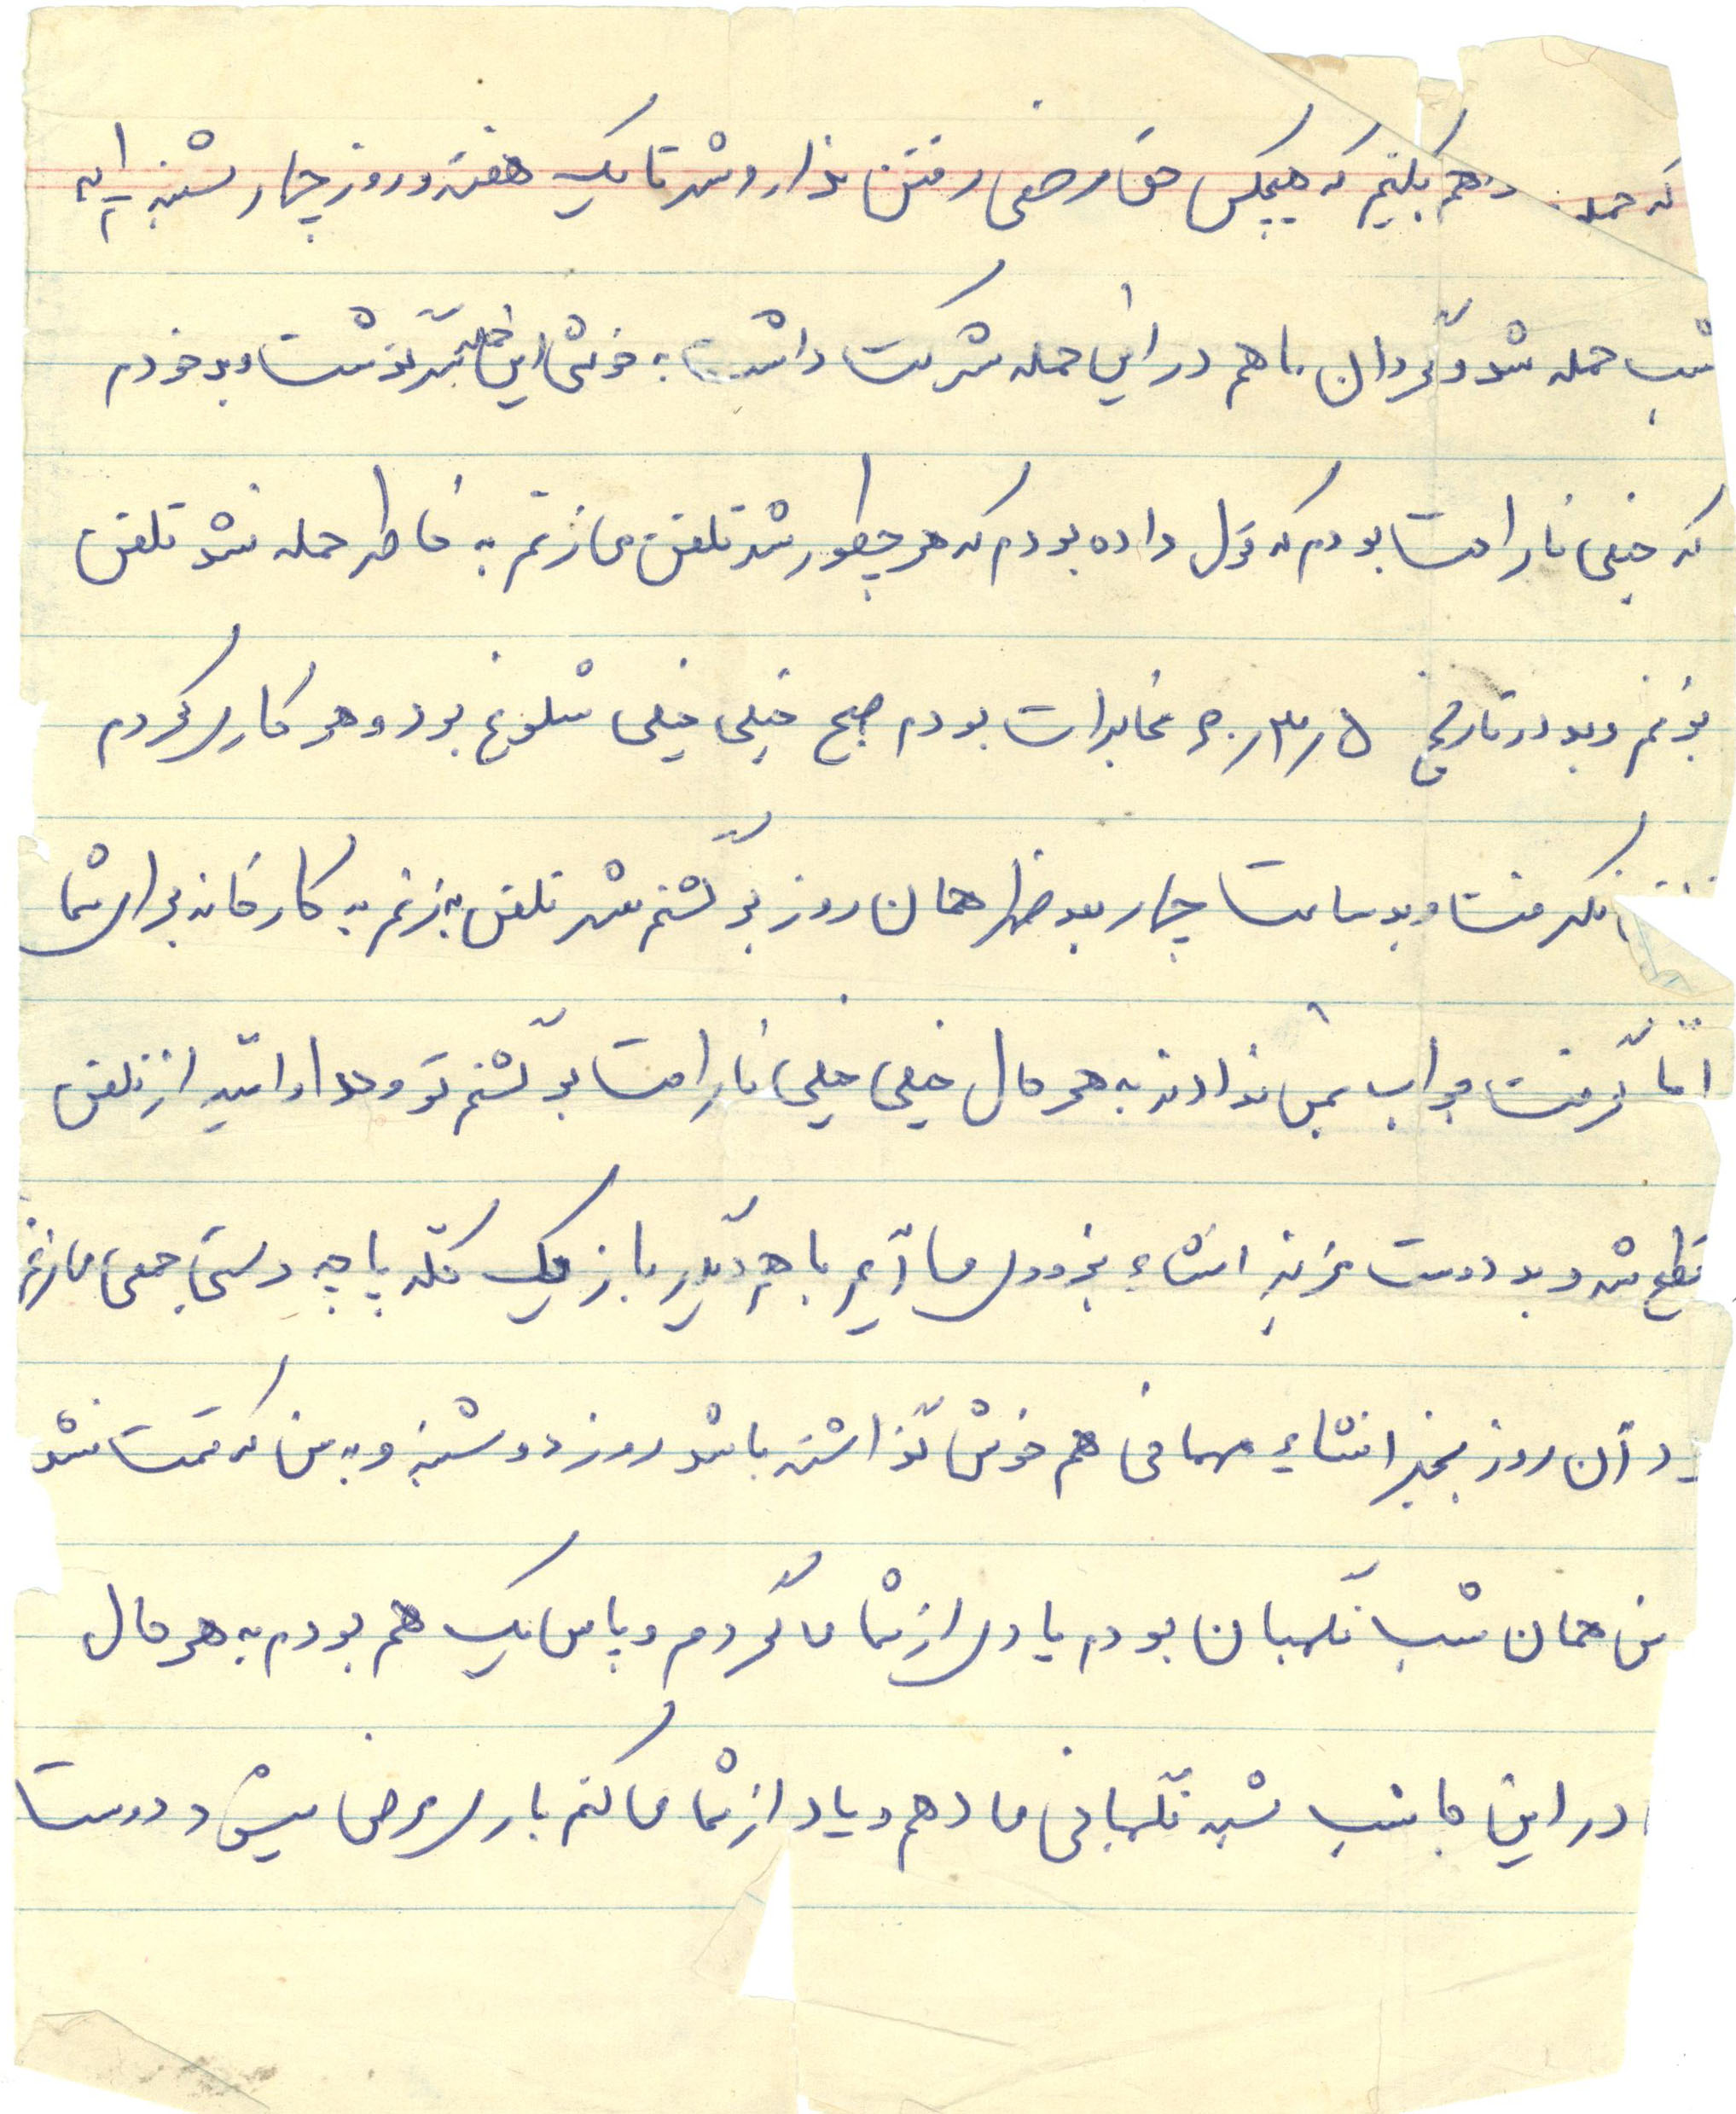 که حمله هم بکنیم که هیچکس حق مرخصی رفتن ندارد و شد تا یک هفته و روز چهار شنبه
شب حمله شد و گردان ما هم در این حمله شرکت داشت به خوشی این حمله گذشت و بعد خودم
که خیلی ناراحت بودم که قول داده بودم که هر چطور شد تلفن می زنم به خاطر حمله نشد تلفن
بزنم و بعد در تاریخ ۶۰/۳/۵ مخابرات بودم صبح خیلی خیلی شلوغ بود و هر کاری کردم
نگرفت و بعد ساعت چهار بعد ظهر همان روز برگشتم شهر تلفن بزنم به کارخانه برای شما
اما گرفت جواب بمن ندادند به هر حال خیلی خیلی ناراحت برگشتم تو از تلفن
قطع شد و بعد دوست عزیز انشاء بزودی می آیم با هم دیگر باز یک کله پاچه دستی جمعی می زنیم
در آن روز بخیر انشاء مهمانی هم خوش گذاشته باشد روز دوشنبه و به من که قسمت نشد
من همان شب نگهبان بودم یادی از شما می کردم و پاس یک هم بودم به هر حال
در این جا شب نگهبانی می دهم و یاد از شما می کنم بار سرعرضی میشود دوست